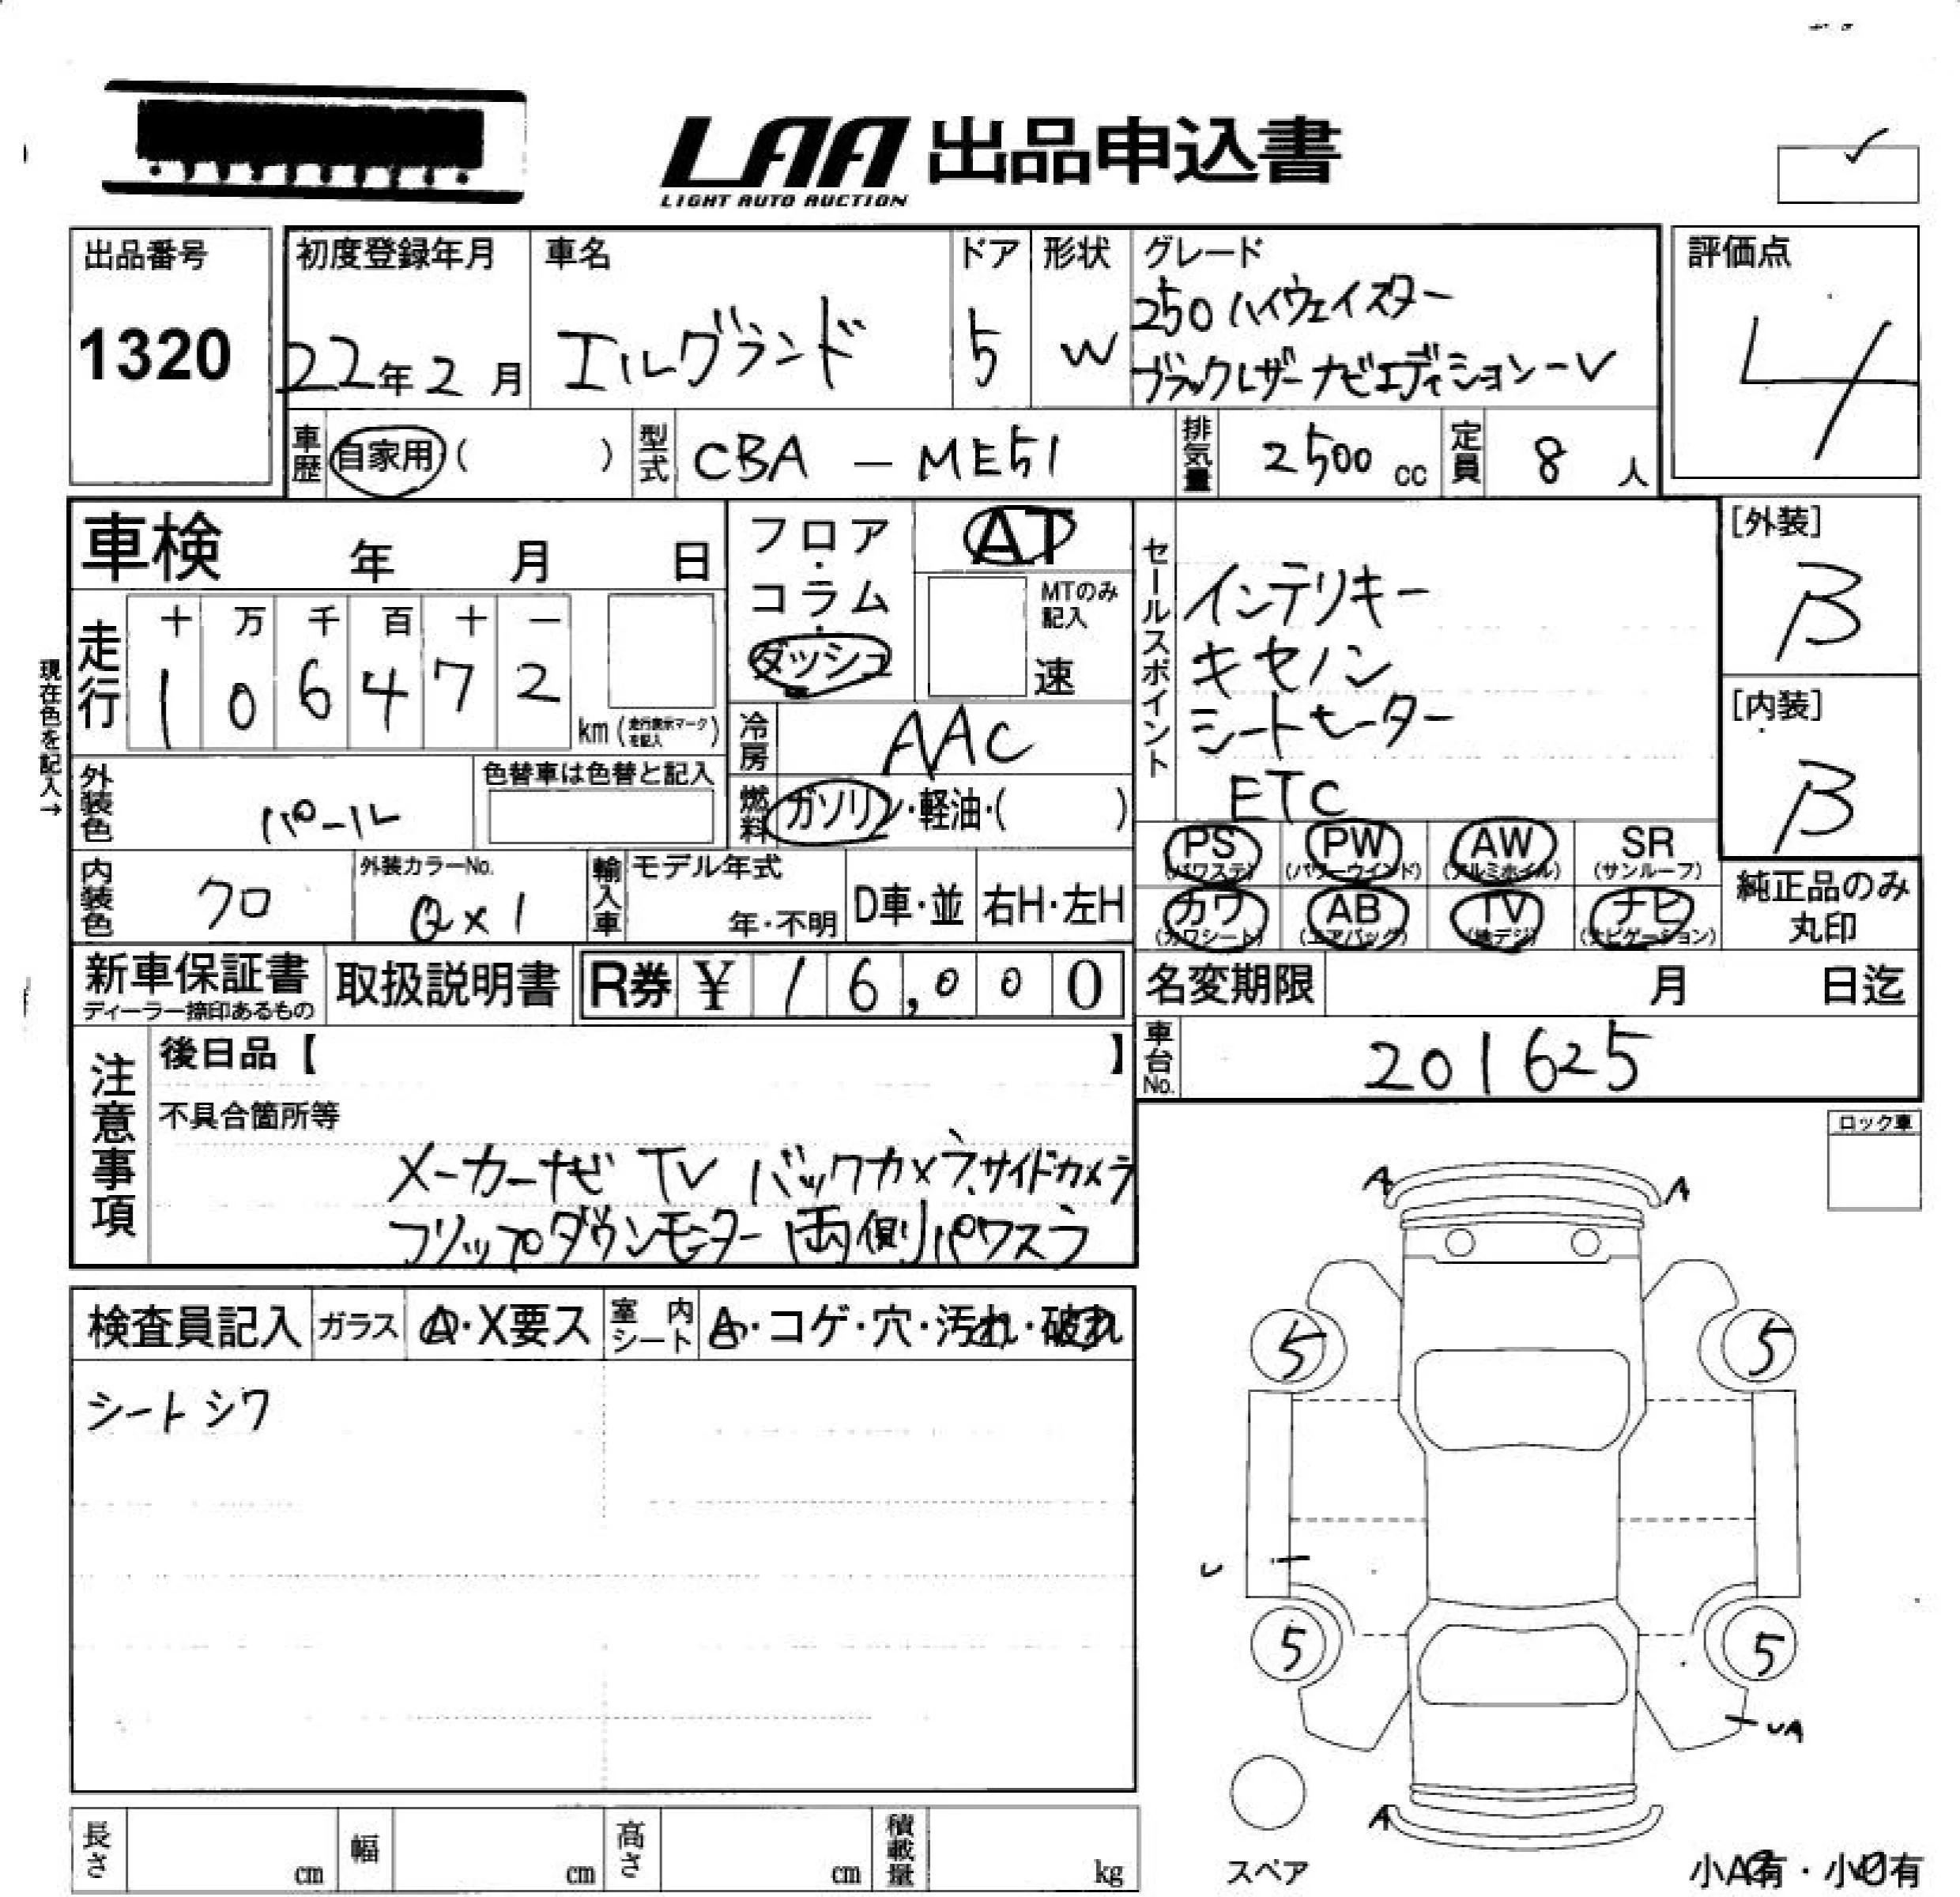 LAA 出品申込書
LIGHT AUTO AUCTION
出品番号
1320
初度登録年月
22年2月
車名
エルグランド
ドア
5
形状
W
グレード
250ハイウェイスター
ブラックレザーナビエディション-V
評価点
4
車歴
自家用( )
型式
CBA - ME51
排気量
2500cc
定員
8人
車検 年 月 日
走行
十 万 千 百 十 一
1 0 6 4 7 2
km(走行表示マークを記入)
現在色を記入→
外装色
パール
色替車は色替と記入
内装色
クロ
外装カラーNo.
QX1
フロア・
コラム・
ダッシュ
AT
MTのみ
記入
速
冷房
AAC
燃料
ガソリン・軽油・( )
輸入車
モデル年式
年・不明
D車・並
右H・左H
セールスポイント
インテリキー
キセノン
シートモーター
ETC
[外装]
B
[内装]
B
PS
(パワステ)
PW
(パワーウインド)
AW
(アルミホイル)
SR
(サンルーフ)
カワ
(カワシート)
AB
(エアバッグ)
TV
(地デジ)
ナビ
(ナビゲーション)
純正品のみ
丸印
新車保証書
ディーラー捺印あるもの
取扱説明書
R券 ¥ 16,000
名変期限 月 日迄
車台No.
201625
注意事項
後日品【 】
不具合箇所等
メーカーナビ TV バックカメラ、サイドカメラ
フリップダウンモニター 両側パワスラ
ロック車
検査員記入
ガラス
A・X要ス
室内シート
A・コゲ・穴・汚れ・破れ
シートシワ
A
A
5
5
U
5
5
UA
A
スペア
小A有・小U有
長さ cm
幅 cm
高さ cm
積載量 kg